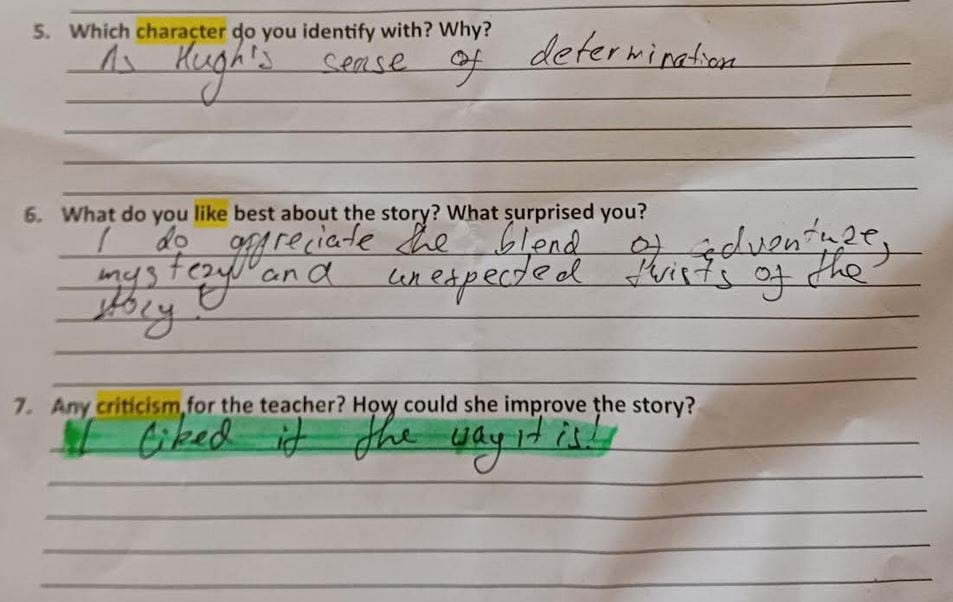 5. Which character do you identify with? Why?
As Hugh's sense of determination
6. What do you like best about the story? What surprised you?
I do appreciate the blend of adventure,
mystery and unexpected twists of the
story.
7. Any criticism for the teacher? How could she improve the story?
I liked it the way it is!